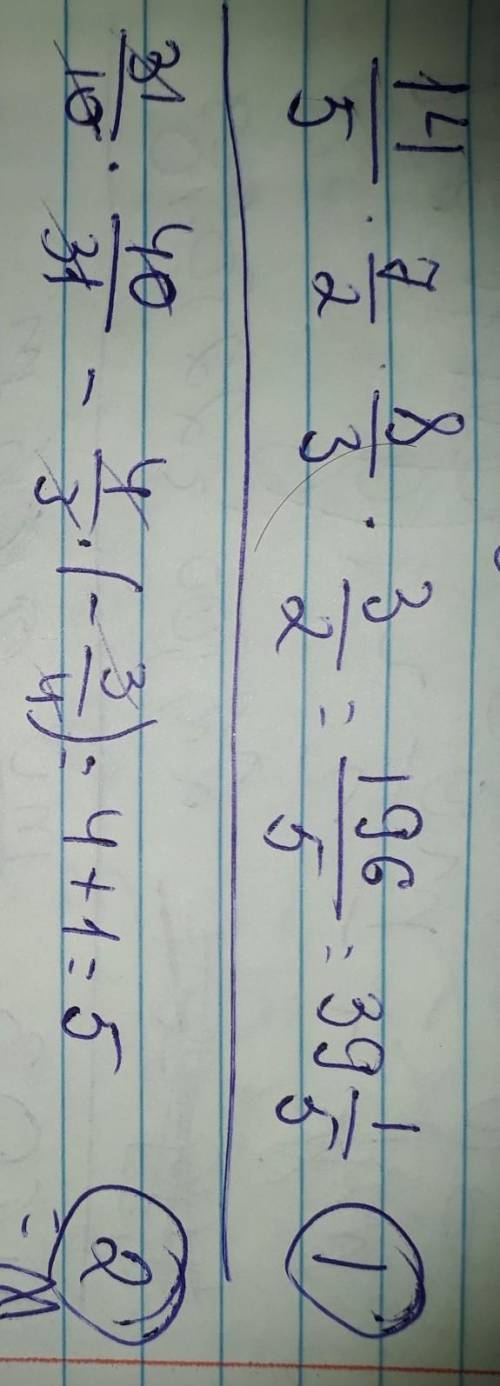 14/5 · 7/2 · 8/3 · 3/2 = 196/5 = 39 1/5 ①
31/10 · 40/31 - 4/3 · (- 3/4) = 4 + 1 = 5 ②
=